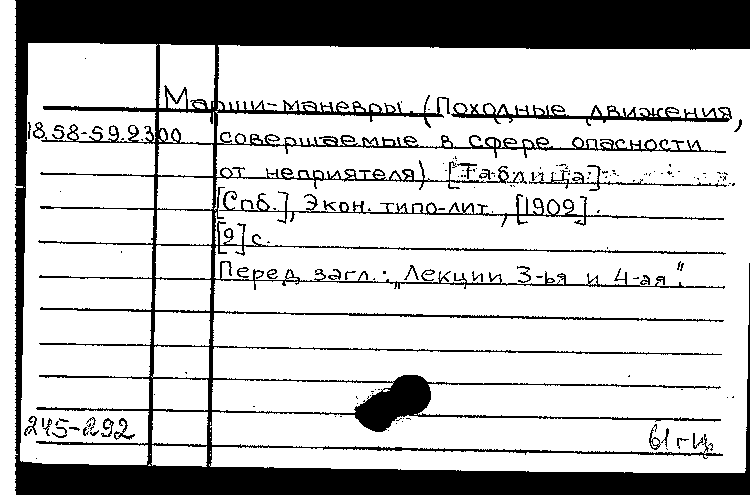 Марши-маневры. (Походные движения,
18.58-59.2300 совершаемые в сфере опасности
от неприятеля) [Таблица]
[Спб.], Экон. типо-лит., [1909].
[2] с.
Перед загл.: „Лекции 3-ья и 4-ая".
245-292